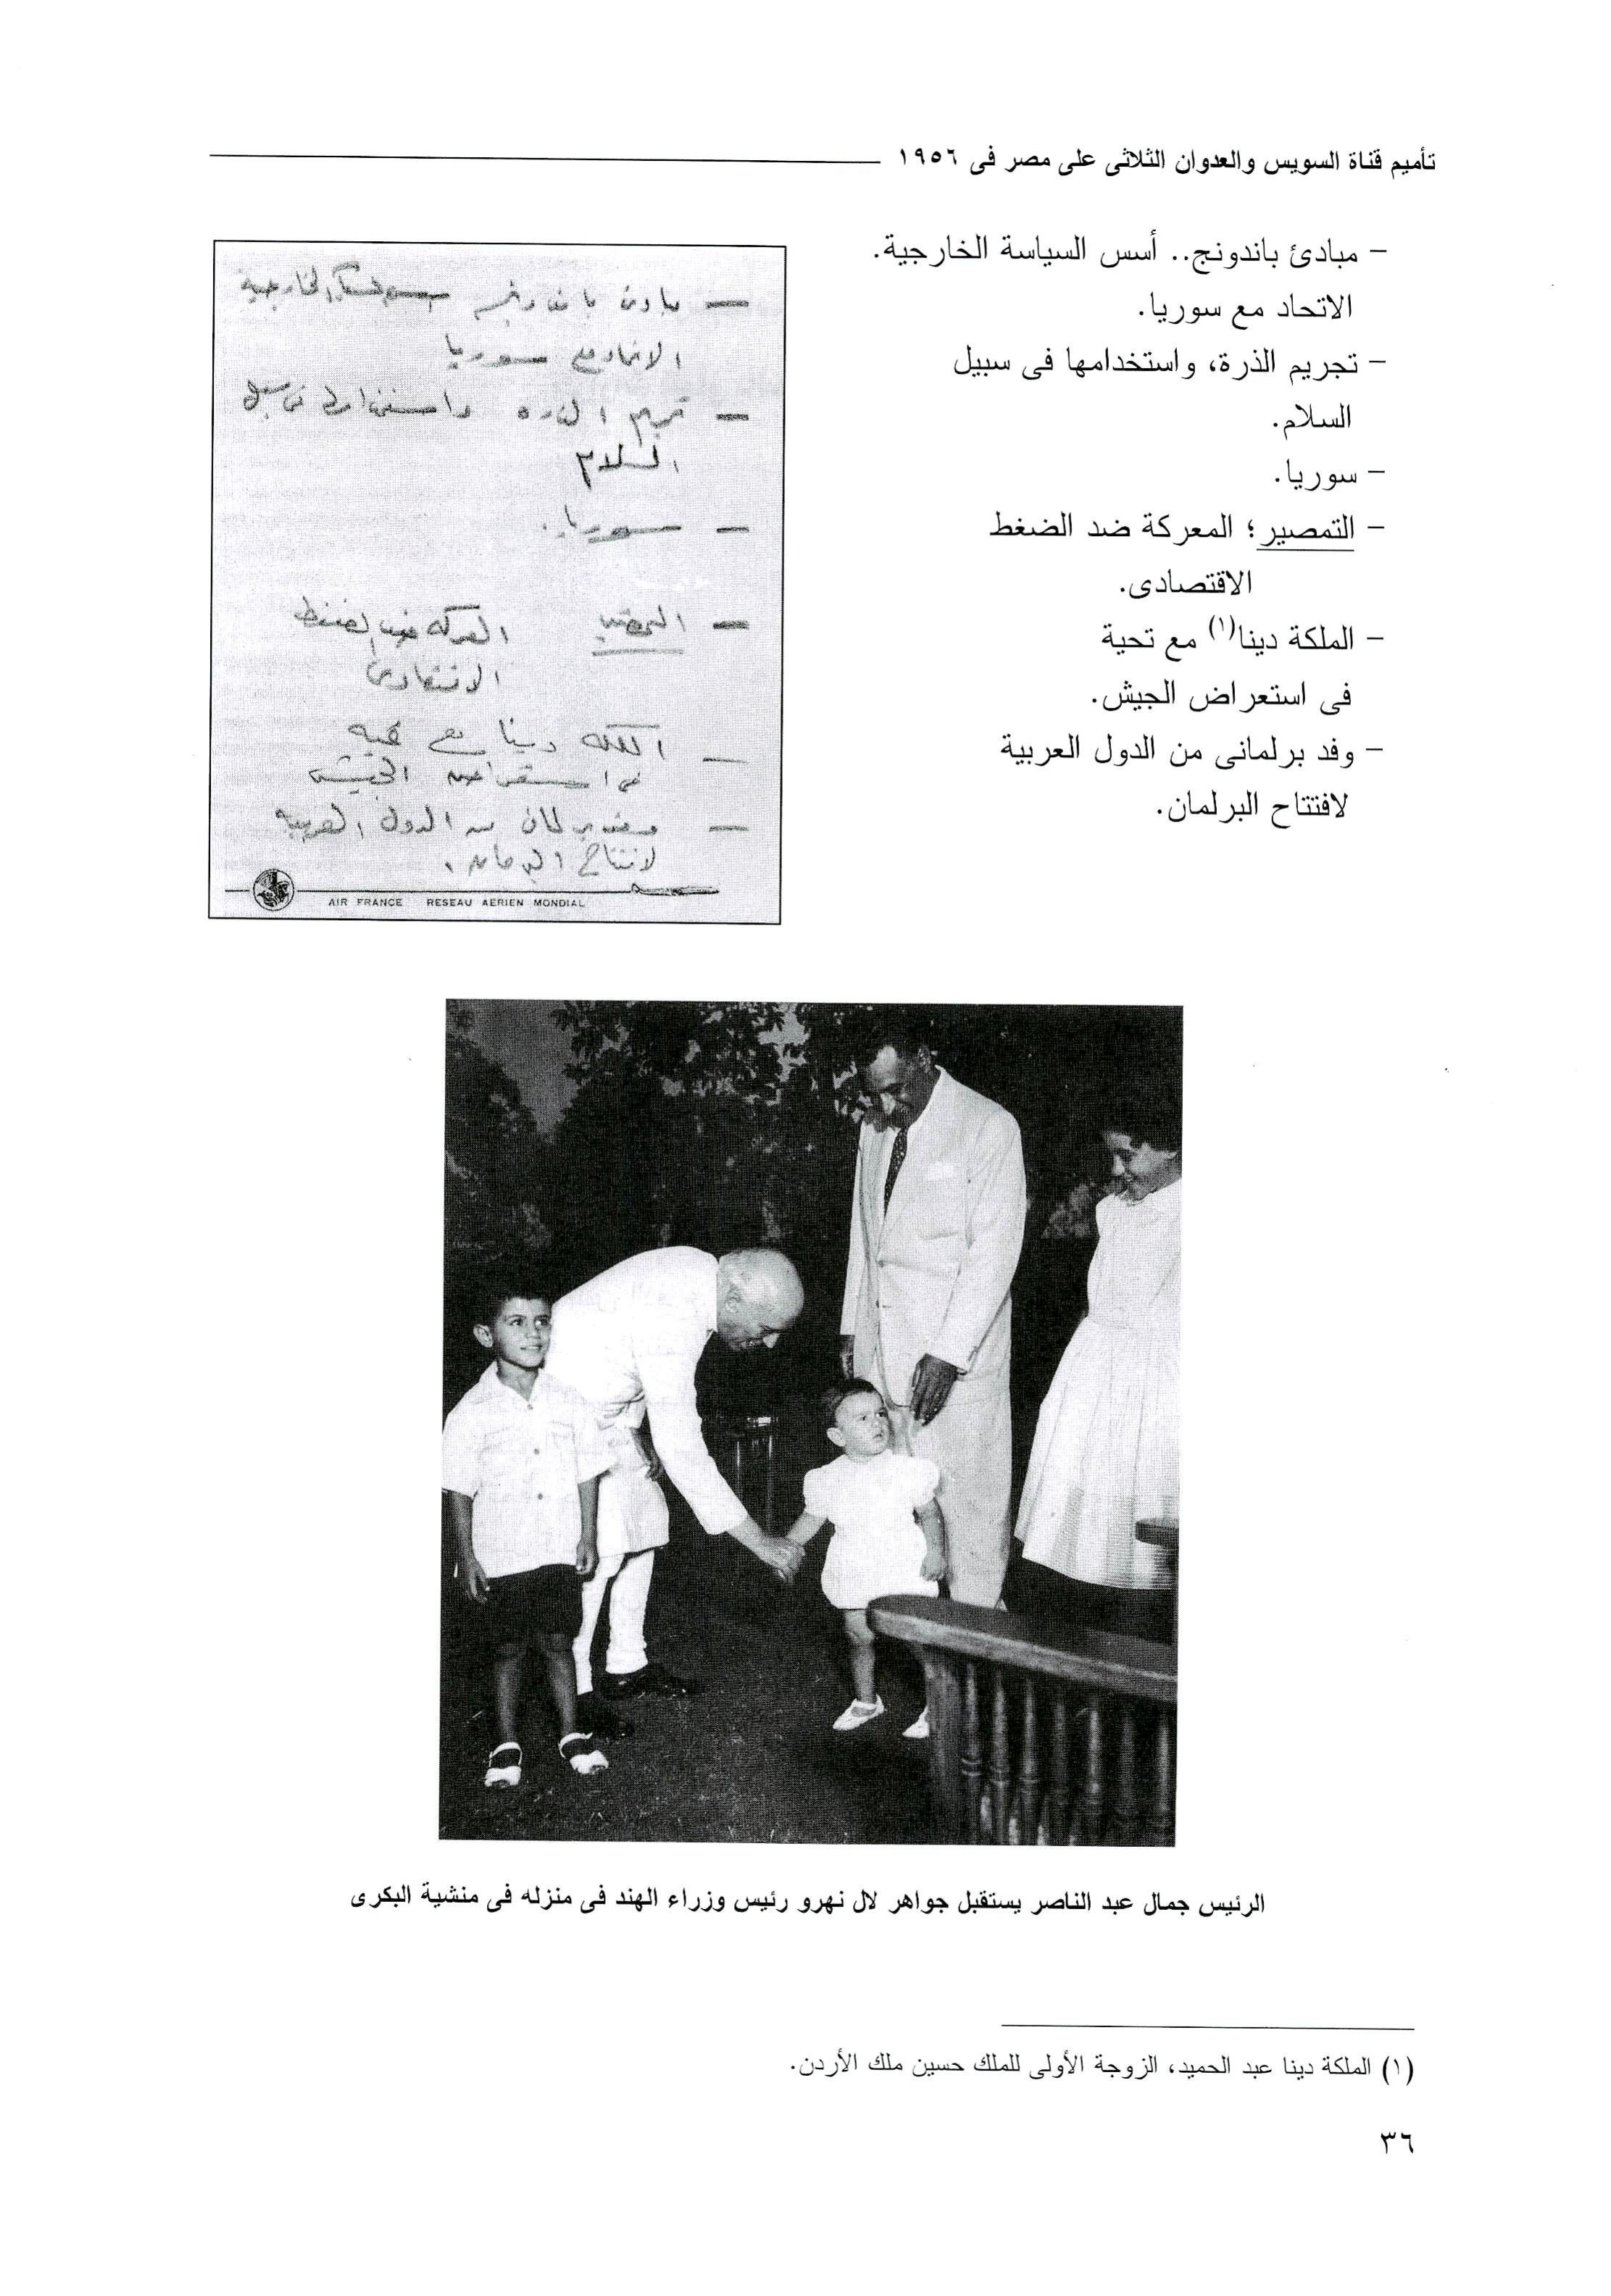 تأميم قناة السويس والعدوان الثلاثى على مصر فى ١٩٥٦
– مبادئ باندونج.. أسس السياسة الخارجية.
الاتحاد مع سوريا.
– تجريم الذرة، واستخدامها فى سبيل
السلام.
– سوريا.
– التمصير؛ المعركة ضد الضغط
الاقتصادى.
– الملكة دينا(١) مع تحية
فى استعراض الجيش.
– وفد برلمانى من الدول العربية
لافتتاح البرلمان.
– مبادئ باندونج أسس السياسة الخارجية
الاتحاد مع سوريا
– تجريم الذرة واستخدامها فى سبيل
السلام
– سوريا.
– التمصير المعركة ضد الضغط
الاقتصادى
– الملكة دينا مع تحية
فى استعراض الجيش
– وفد برلمانى من الدول العربية
لافتتاح البرلمان.
AIR FRANCE RESEAU AERIEN MONDIAL
الرئيس جمال عبد الناصر يستقبل جواهر لال نهرو رئيس وزراء الهند فى منزله فى منشية البكرى
(١) الملكة دينا عبد الحميد، الزوجة الأولى للملك حسين ملك الأردن.
٣٦